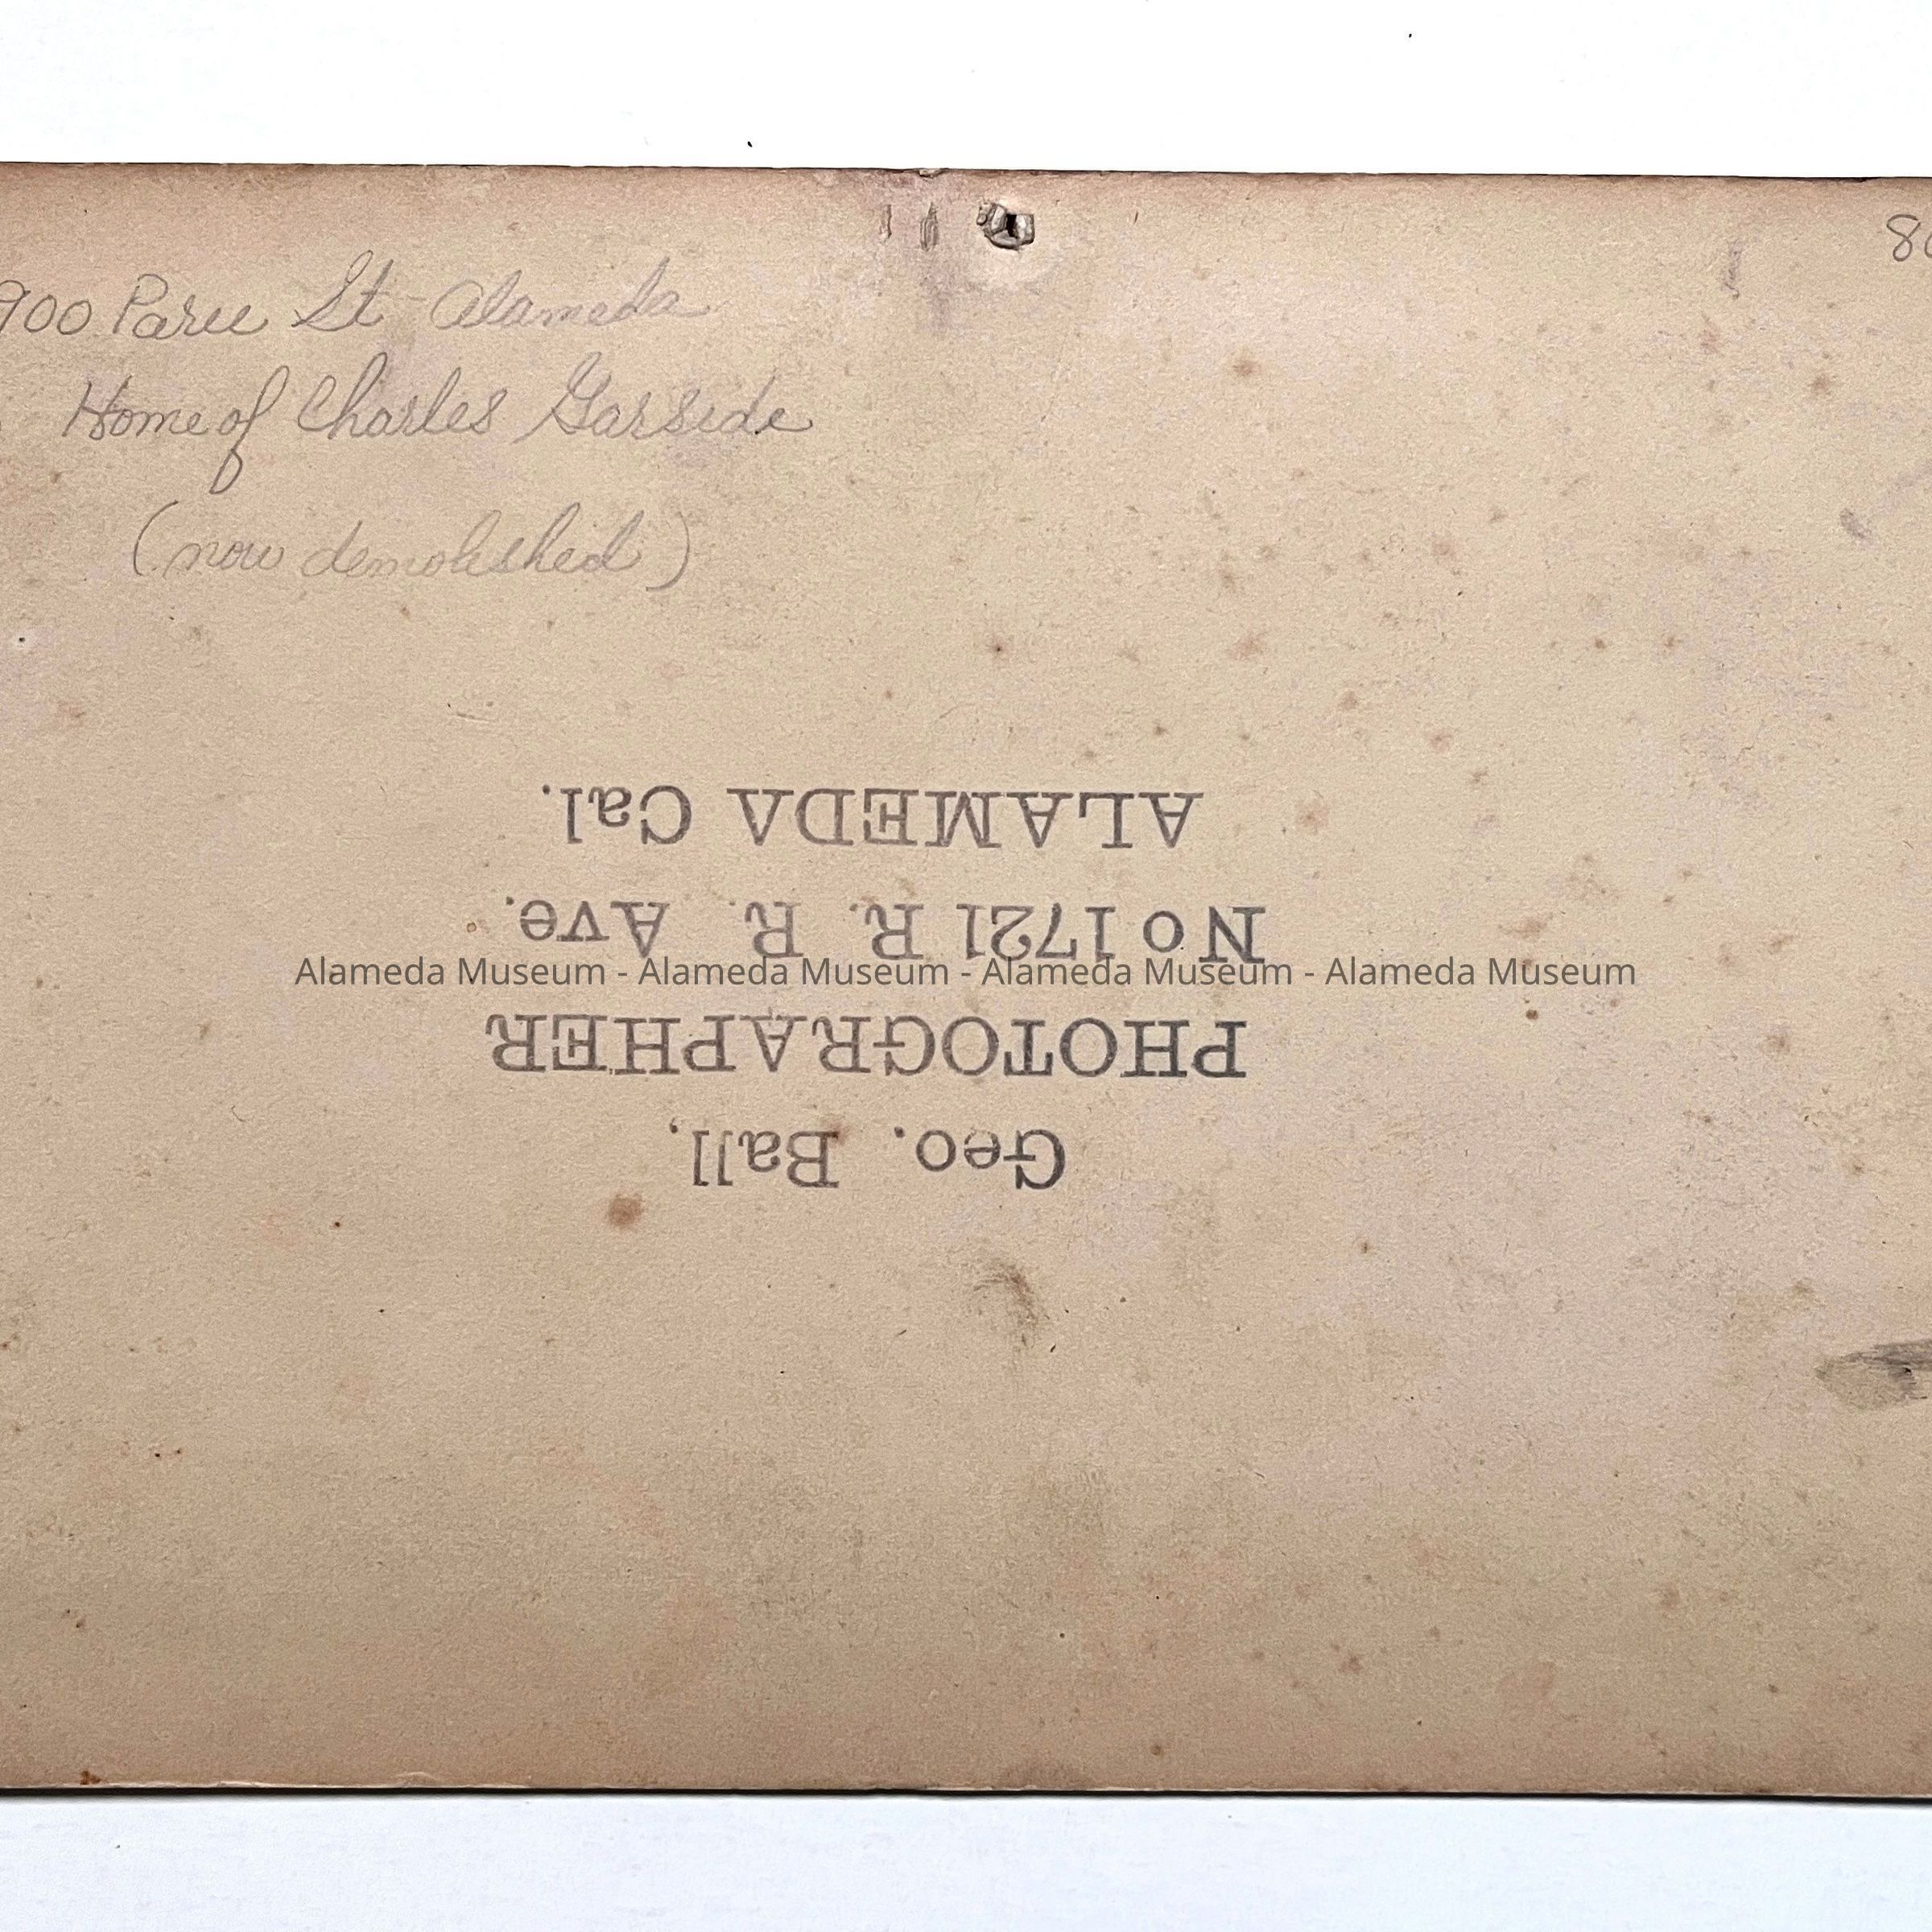 900 Paru St - Alameda
Home of Charles Garside
(now demolished)
Geo. Ball,
PHOTOGRAPHER
No 1721 R. R. Ave.
ALAMEDA Cal.
Alameda Museum - Alameda Museum - Alameda Museum - Alameda Museum